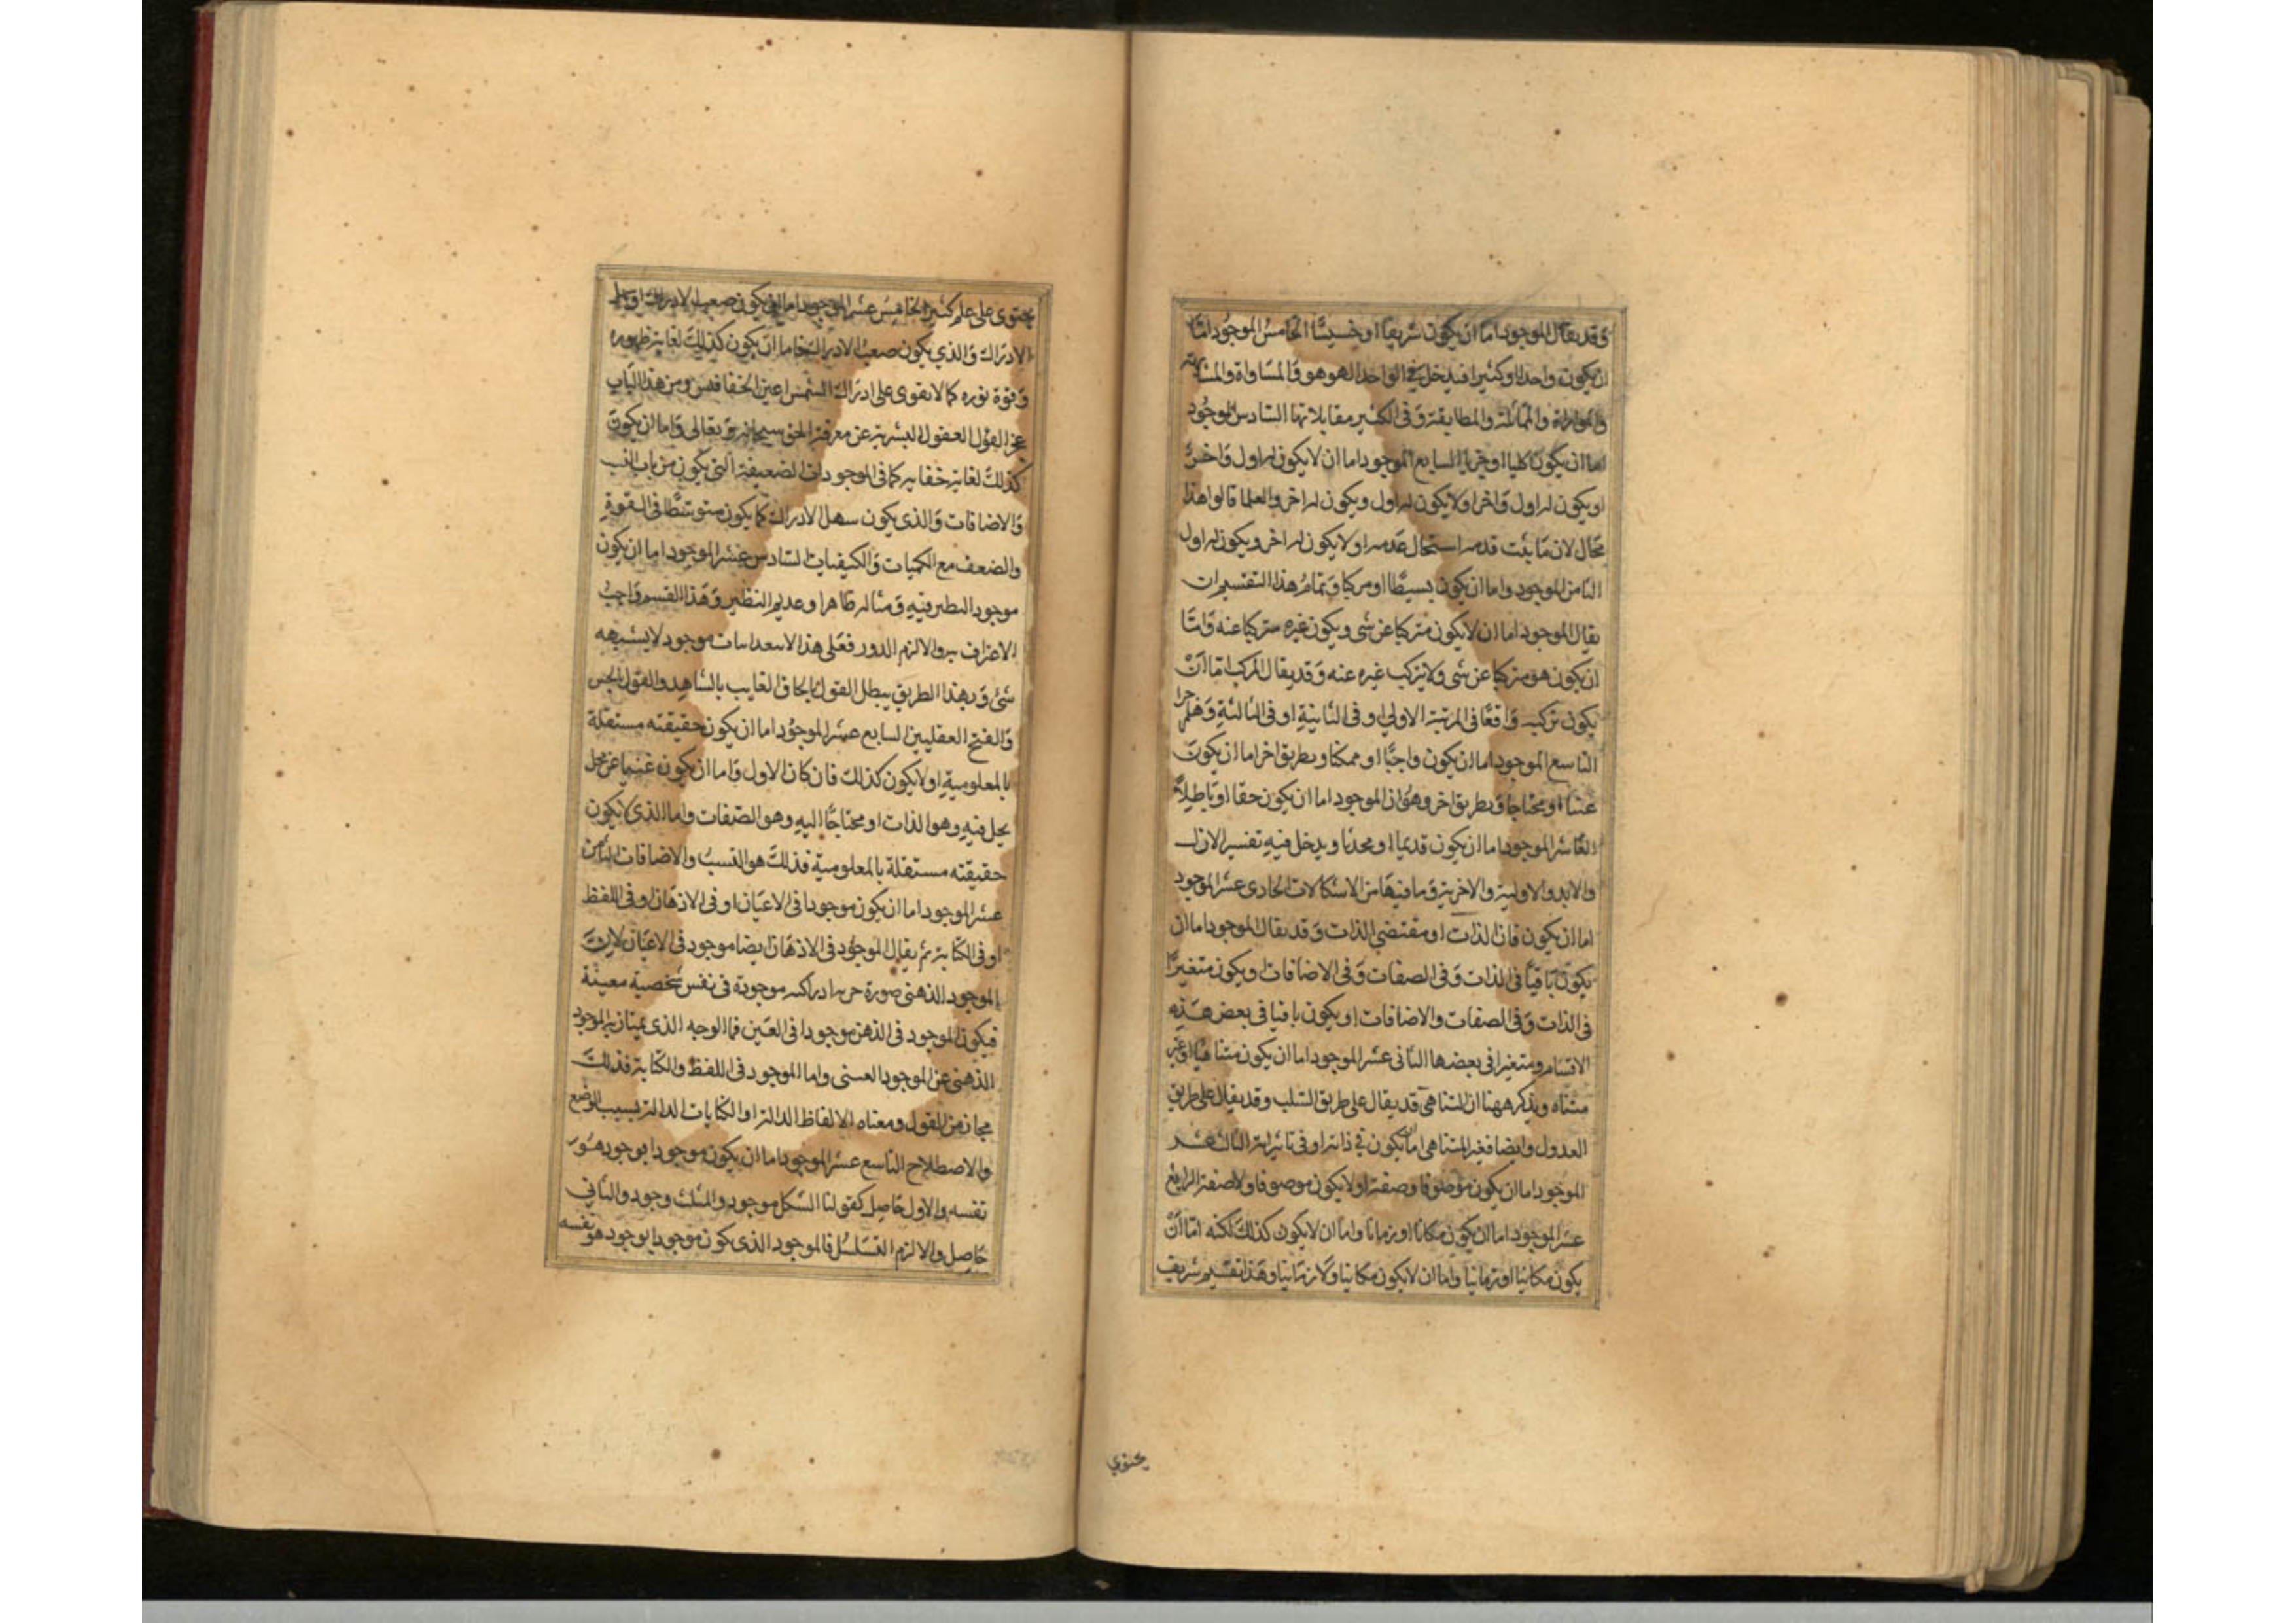 وقد يقال الموجود اما ان يكون شريفا او خسيسا الخامس الموجود اما
ان يكون واحدا او كثيرا فيدخل في الواحد الهو هو والمساواة والمشابهة
والموازاة والمماثلة والمطابقة وفى الكثير مقابلاتها السادس الموجود
اما ان يكون كليا او جزيا السابع الموجود اما ان لا يكون له اول واخر
او يكون له اول واخر او لا يكون له اول ويكون له اخر والعلما قالوا هذا
محال لان ما يثبت قدمه استحال عدمه او لا يكون له اخر ويكون له اول
الثامن الموجود واما ان يكون بسيطا او مركبا وتمام هذا التقسيم ان
يقال الموجود اما ان لا يكون متركبا عن شى ويكون غيره متركبا عنه واما
ان يكون هو متركبا عن شى ولا يتركب غيره عنه وقد يقال المركب اما ان
يكون تركبه واقعا فى المرتبة الاولى او فى الثانية او فى الثالثة وهلم جرا
التاسع الموجود اما ان يكون واجبا او ممكنا وبطريق اخر اما ان يكون
غنيا او محتاجا وبطريق اخر وهو ان الموجود اما ان يكون حقا او باطلا
العاشر الموجود اما ان يكون قديما او محدثا ويدخل فيه تفسير الازل
والابد والاولية والاخرية وما فيها من الاشكالات الحادى عشر الموجود
اما ان يكون فان الذات او مقتضى الذات وقد يقال الموجود اما ان
يكون باقيا فى الذات وفى الصفات وفى الاضافات او يكون متغيرا
فى الذات وفى الصفات والاضافات او يكون باقيا فى بعض هذه
الاقسام ومتغيرا فى بعضها الثانى عشر الموجود اما ان يكون متناهيا او غير
متناه ويذكر ههنا ان المتناهى قد يقال على طريق السلب وقد يقال على طريق
العدول وايضا فغير المتناهى اما ان يكون في ذاته او فى تاثيراته الثالث عشر
الموجود اما ان يكون موصوفا وصفة او لا يكون موصوفا ولا صفة الرابع
عشر الموجود اما ان يكون مكانا او زمانا واما ان لا يكون كذلك لكنه اما ان
يكون مكانيا او زمانيا واما ان لا يكون مكانيا ولا زمانيا وهذا تقسيم شريف
يحتوي
يحتوى على علم كثير الخامس عشر الموجود اما ان يكون صعب الادراك او سهل
الادراك والذي يكون صعب الادراك فاما ان يكون كذلك لغاية ظهوره
وقوة نوره كما لا يقوى على ادراك الشمس اعين الخفافيش ومن هذا الباب
عجز العقول البشرية عن معرفة الحق سبحانه وتعالى واما ان يكون
كذلك لغاية خفايه كما فى الموجودات الضعيفة التى يكون من باب النسب
والاضافات والذى يكون سهل الادراك كما يكون متوسطا فى القوة
والضعف مع الكميات والكيفيات السادس عشر الموجود اما ان يكون
موجود النظير فيه ومثاله ظاهر او عديم النظير وهذا القسم واجب
الاعتراف به والا لزم الدور فعلى هذا لا يبعد اثبات موجود لا يشبهه
شئ وبهذا الطريق يبطل القول بالحاق الغايب بالشاهد والقول الحس
والقبح العقليين السابع عشر الموجود اما ان يكون حقيقته مستقلة
بالمعلومية او لا يكون كذلك فان كان الاول واما ان يكون غنيا عن محل
يحل فيه وهو الذات او محتاجا اليه وهو الصفات واما الذى لا يكون
حقيقته مستقلة بالمعلومية فذلك هو النسب والاضافات الثامن
عشر الموجود اما ان يكون موجودا فى الاعيان او فى الاذهان او فى اللفظ
او فى الكتابة ثم يقال الموجود فى الاذهان ايضا موجود فى الاعيان لان
الموجود الذهنى صورة ادراكيه موجودة فى نفس شخصية معينة
فيكون الموجود فى الذهن موجودا فى العين فما الوجه الذى يمتاز به الموجود
الذهنى عن الموجود العينى واما الموجود فى اللفظ والكتابة فذلك
مجاز من القول ومعناه الالفاظ الدالة او الكتابات الدالة بسبب الوضع
والاصطلاح التاسع عشر الموجود اما ان يكون موجودا بوجود هو
نفسه والاول حاصل كقولنا الشكل موجود والمثلث وجود والثانى
حاصل والا لزم التسلسل فالموجود الذى يكون موجودا بوجود هو نفسه